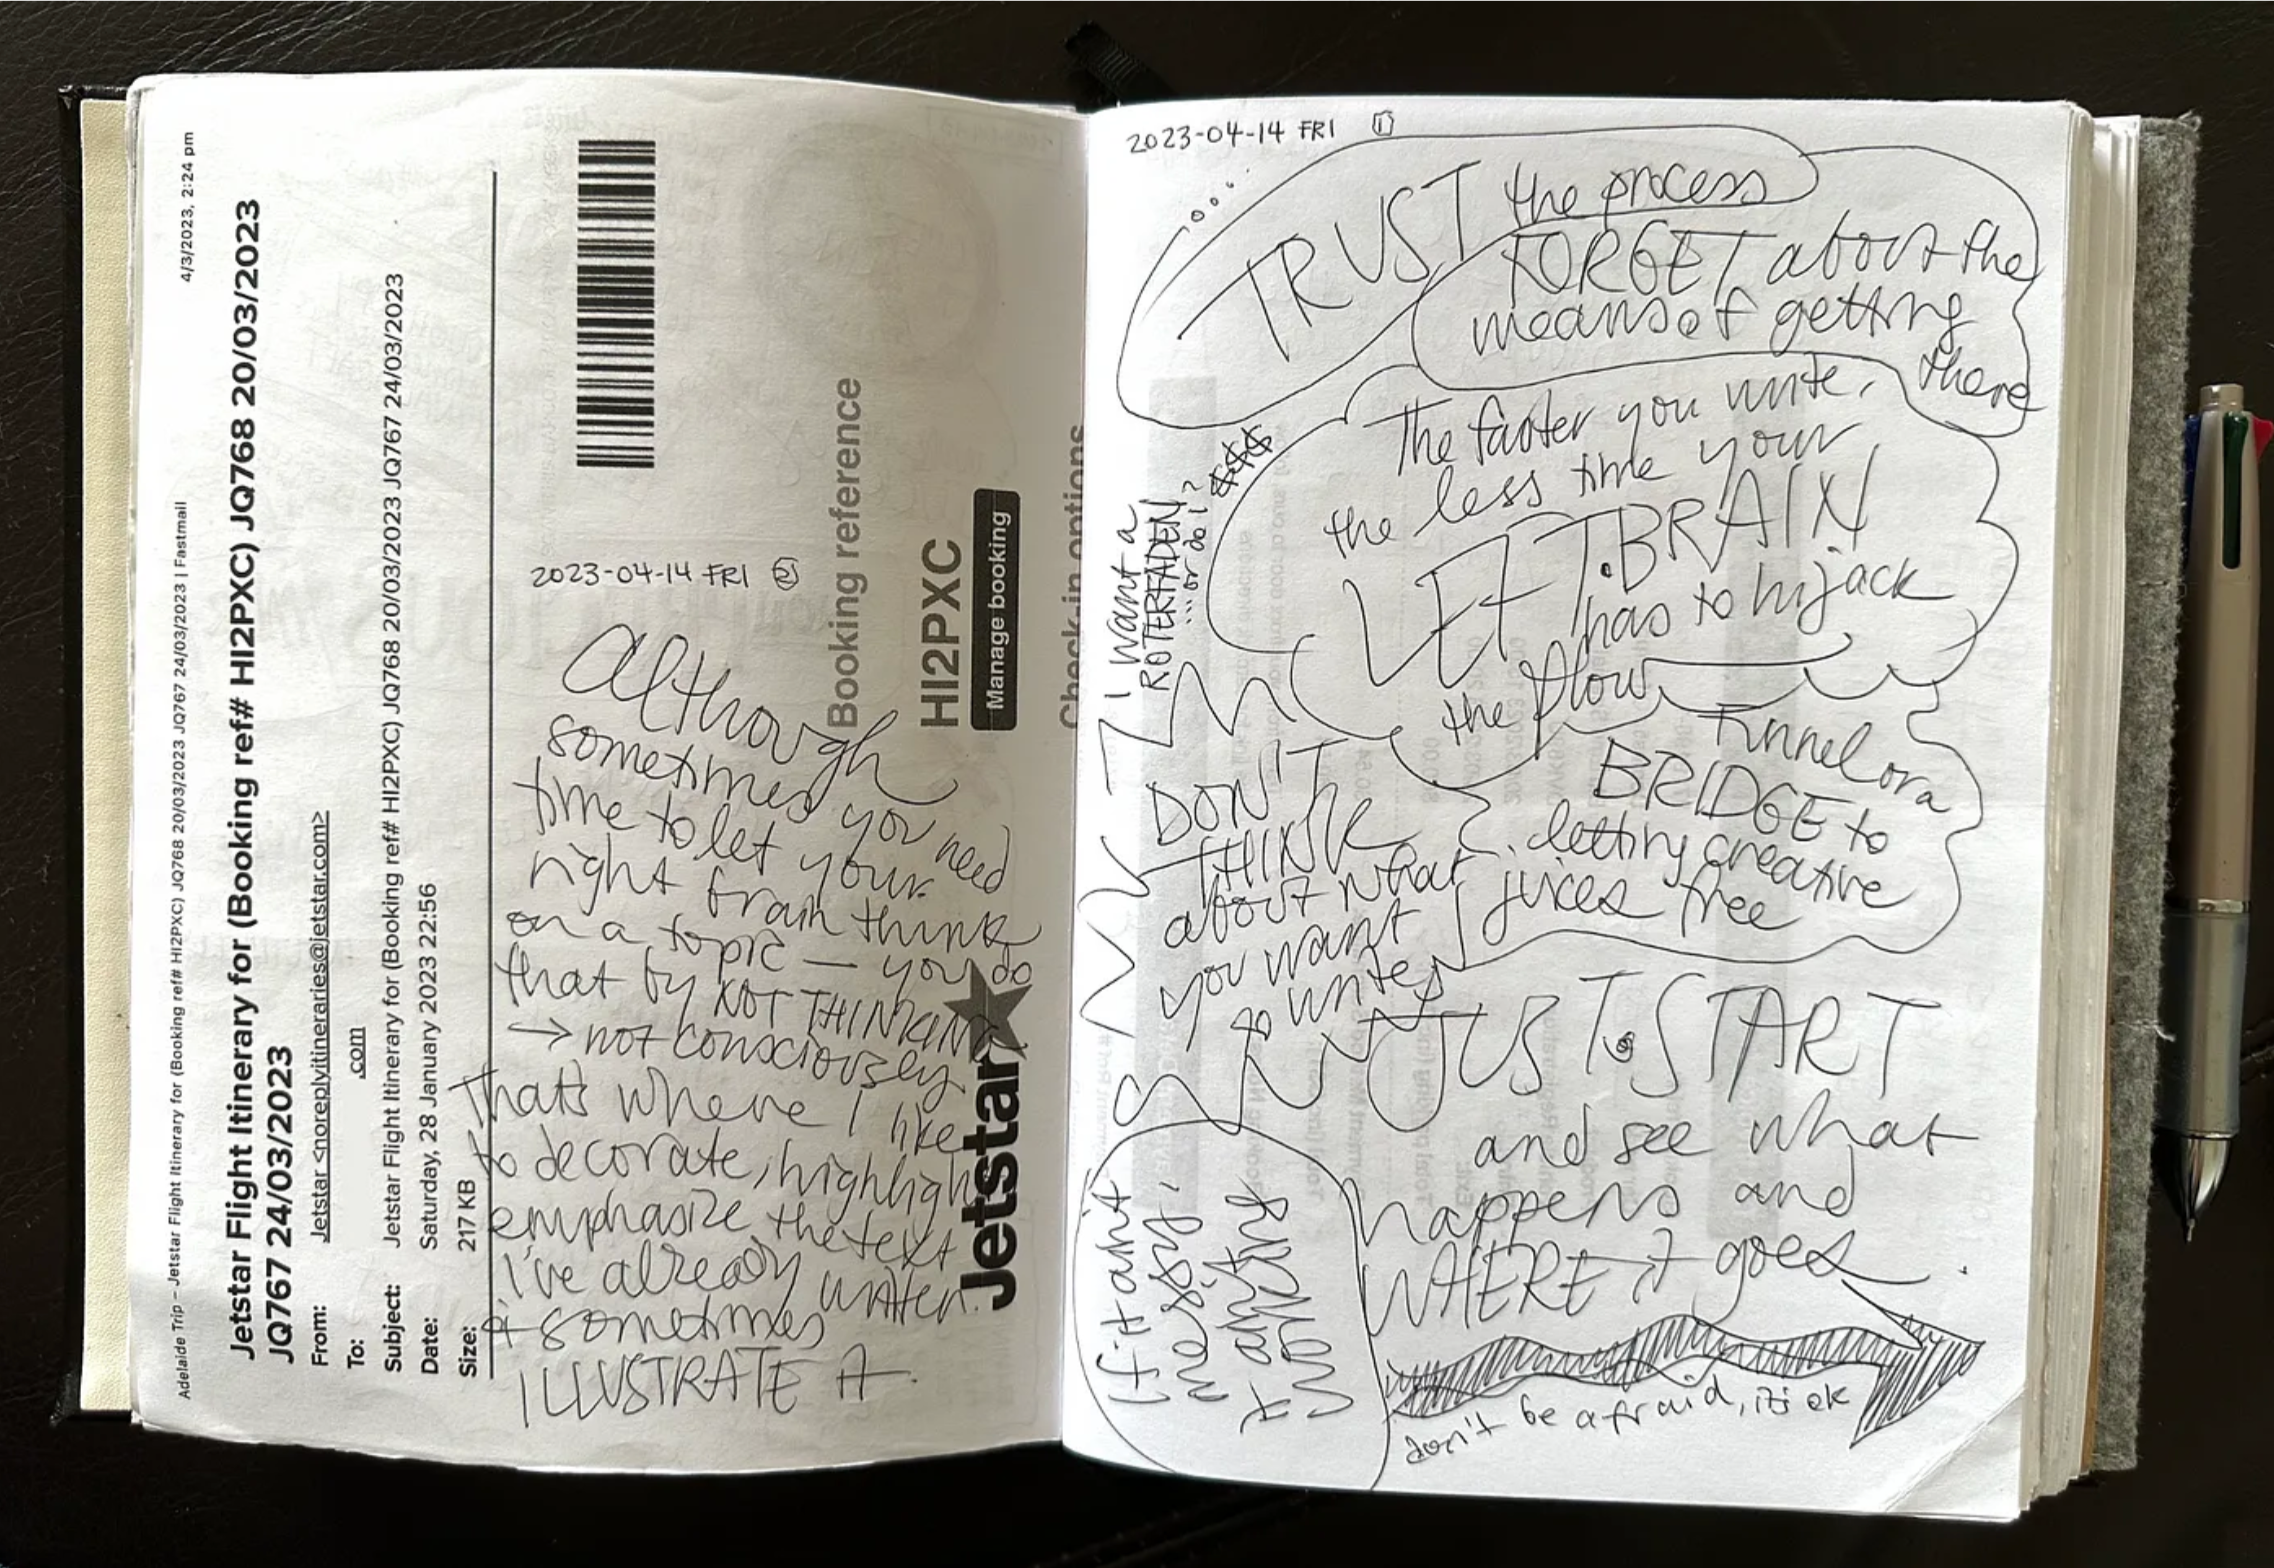 4/3/2023, 2:24 pm
Adelaide Trip – Jetstar Flight Itinerary for (Booking ref# HI2PXC) JQ768 20/03/2023 JQ767 24/03/2023 | Fastmail
Jetstar Flight Itinerary for (Booking ref# HI2PXC) JQ768 20/03/2023
JQ767 24/03/2023
From: Jetstar <noreplyitineraries@jetstar.com>
To: .com
Subject: Jetstar Flight Itinerary for (Booking ref# HI2PXC) JQ768 20/03/2023 JQ767 24/03/2023
Date: Saturday, 28 January 2023 22:56
Size: 217 KB
Jetstar
Booking reference
HI2PXC
Manage booking
Check-in options
2023-04-14 FRI 2
Although
sometimes you need
time to let your
right brain think
on a topic — you do
that by NOT THINKING
→ not consciously
That's where I like
to decorate, highlight
emphasize the text
I've already written.
& sometimes
ILLUSTRATE it.
2023-04-14 FRI 1
TRUST the process
FORGET about the
means of getting
there
The faster you write,
the less time your
LEFT.BRAIN
has to hijack
the flow
Funnel or a
BRIDGE to
letting creative
juices free
I want a
ROTERFADEN!
...or do I?
$$$
DON'T
THINK
about what
you want
to write,
JUST START
and see what
happens and
WHERE it goes.
If it aint
messy,
it aint
working
don't be afraid, it's ok